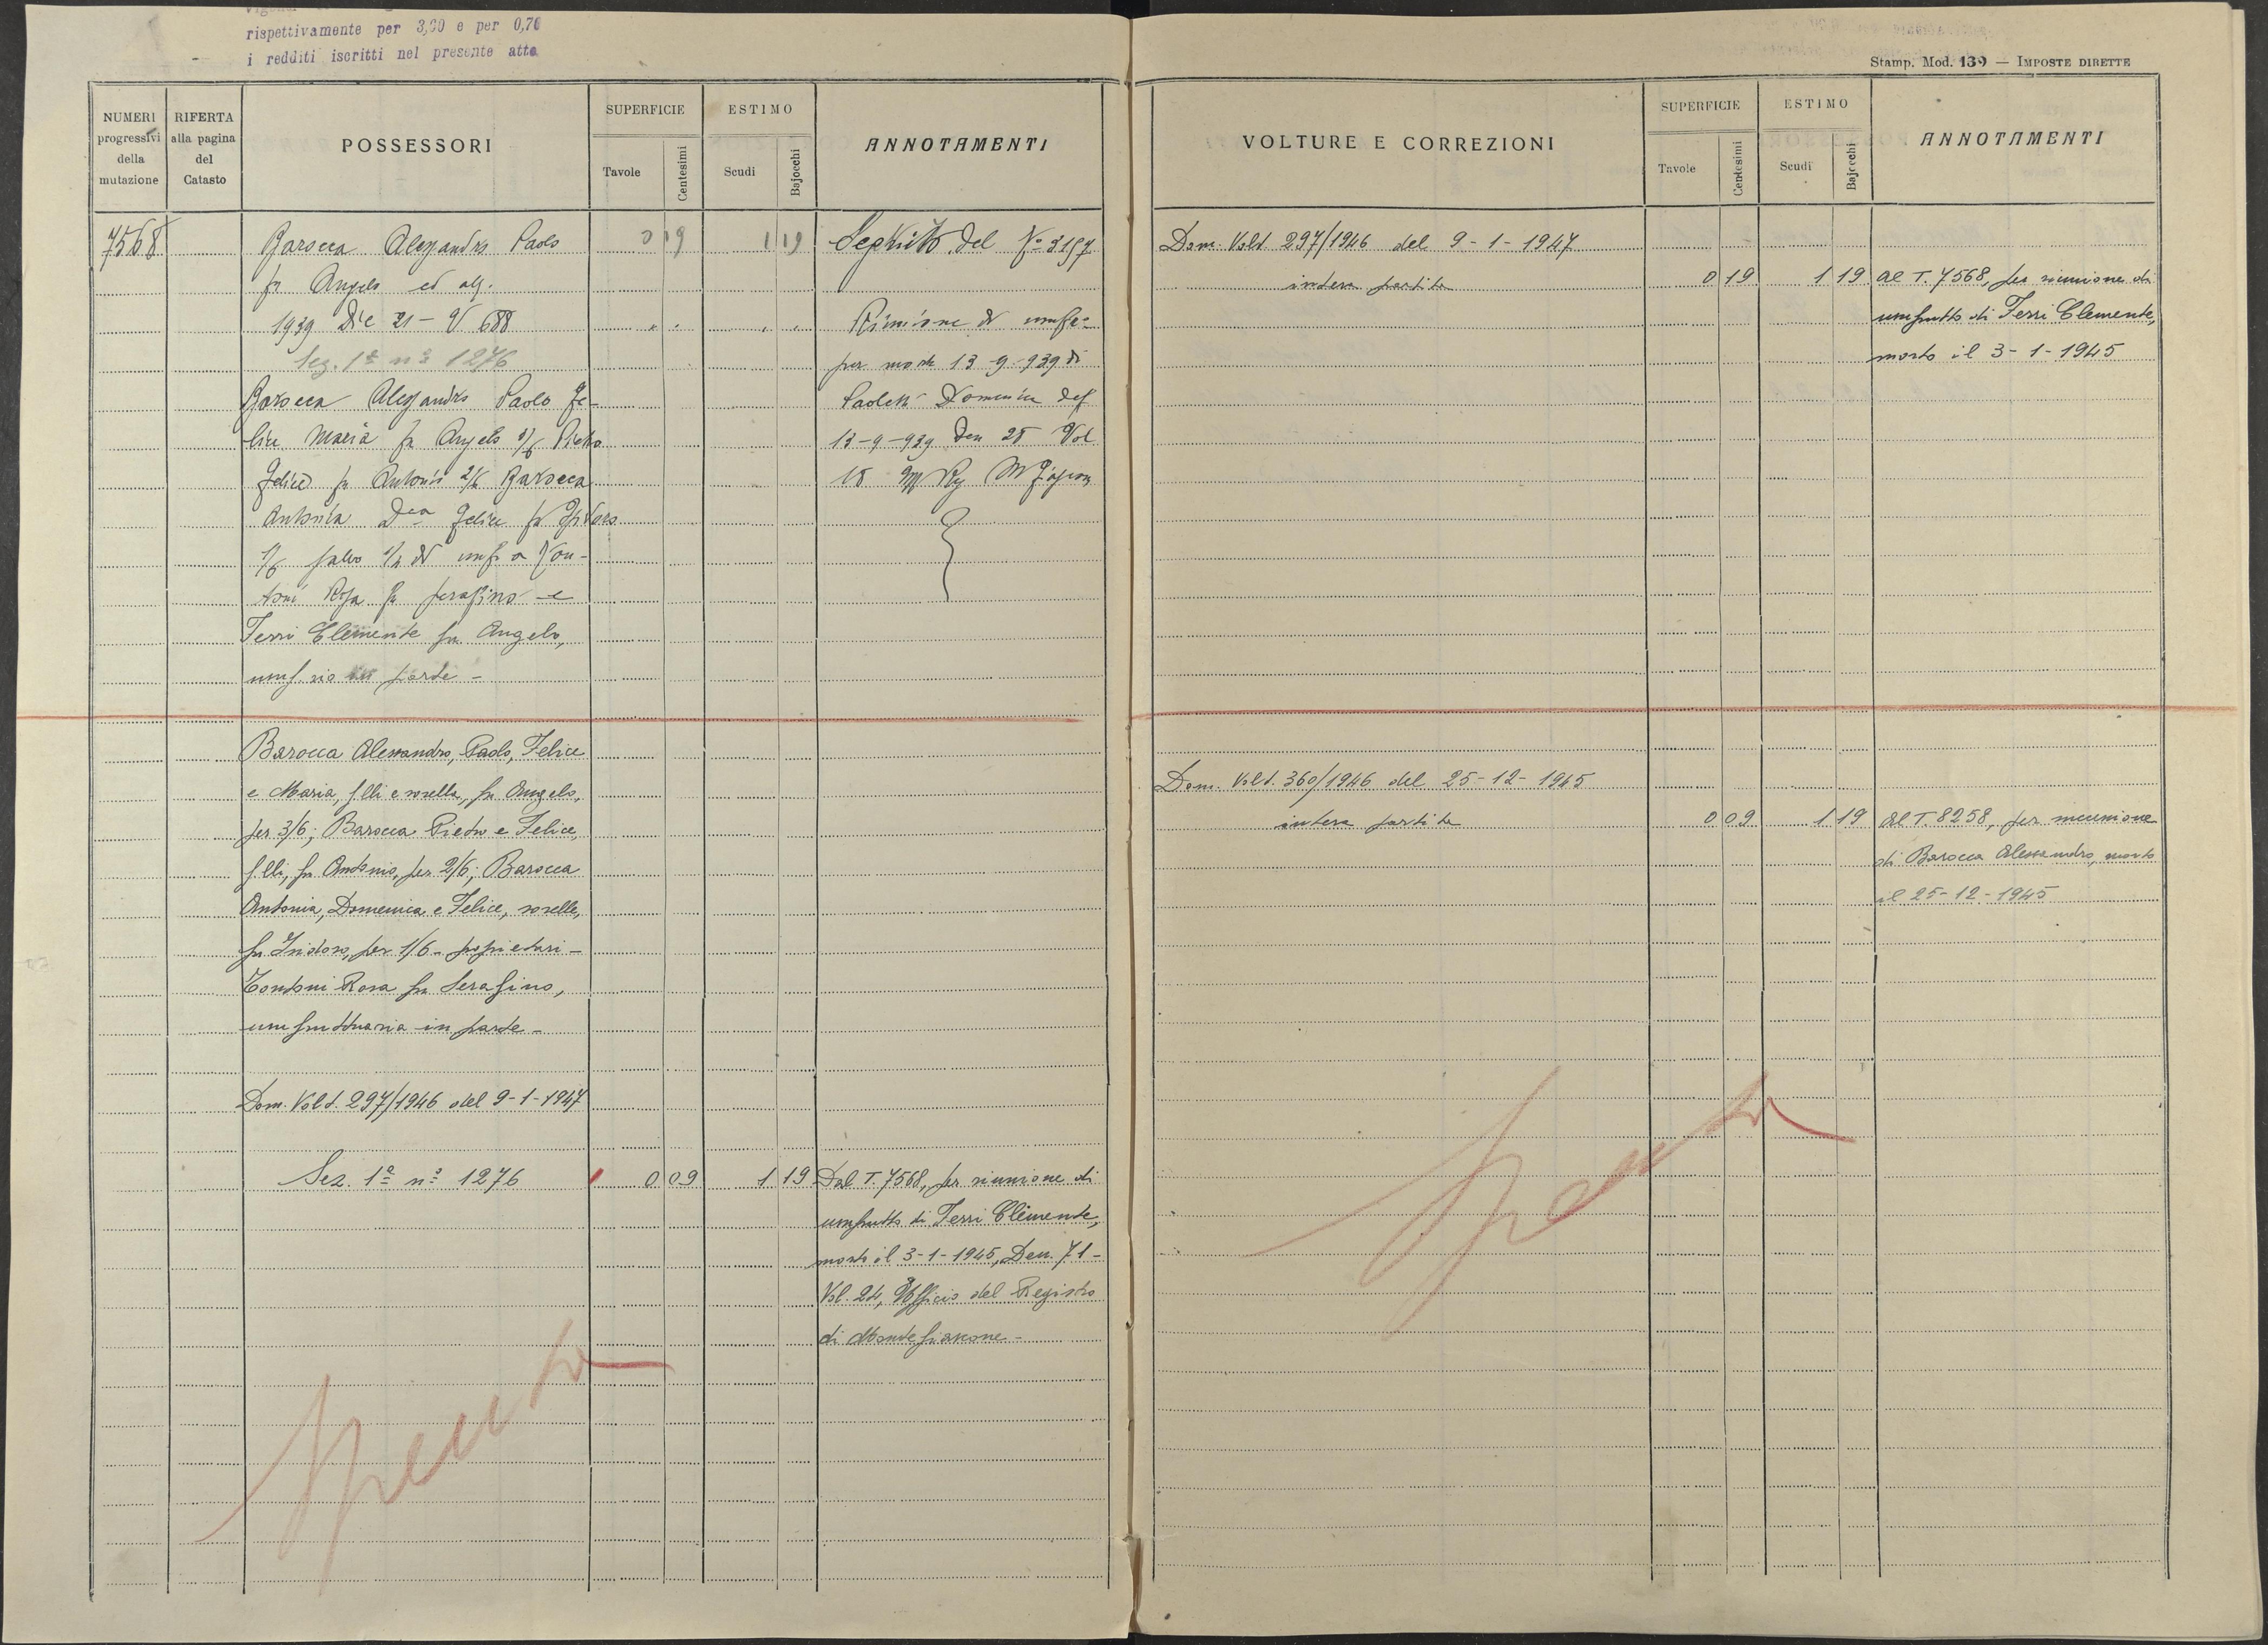 rispettivamente per 3,30 e per 0,70
i redditi iscritti nel presente atto
NUMERI progressivi della mutazione
RIFERTA alla pagina del Catasto
POSSESSORI
SUPERFICIE
Tavole
Centesimi
ESTIMO
Scudi
Bajocchi
ANNOTAMENTI
7568
Barocca Alessandro Paolo
0 19
1 19
Seguito del No 3197
fu Angelo ed alt.
1939 Dic 21 - V 688
Riunione di usuf.
Sez. 1ª nº 1276
per morte 13-9-939 di
Barocca Alessandro Paolo Fe-
Paoletti Domenica def
lice Maria fu Angelo 3/6 Pietro
13-9-939 Den 28 Vol
Felice fu Antonio 2/6 Barocca
18
Antonia Dca Felice fu Isidoro
1/6 salvo 1/2 di usuf. a Ton-
toni Rosa fu Serafino e
Terri Clemente fu Angelo,
parte -
Barocca Alessandro, Paolo, Felice
e Maria, f.lli e sorella, fu Angelo,
per 3/6; Barocca Pietro e Felice,
f.lli, fu Antonio, per 2/6; Barocca
Antonia, Domenica e Felice, sorelle,
fu Isidoro, per 1/6 - proprietari -
Tontoni Rosa fu Serafino,
usufruttuaria in parte -
Dom. Volt. 297/1946 del 9-1-1947
Sez. 1ª nº 1276
0 09
1 19
Dal T. 7568, per riunione di
usufrutto di Terri Clemente,
morto il 3-1-1945, Den. 71 -
Vol. 24, Ufficio del Registro
di Montefiascone -
Spenta
Stamp. Mod. 139 — IMPOSTE DIRETTE
VOLTURE E CORREZIONI
SUPERFICIE
Tavole
Centesimi
ESTIMO
Scudi
Bajocchi
ANNOTAMENTI
Dom. Volt. 297/1946 del 9-1-1947
intera partita
0 19
1 19
Al T. 7568, per riunione di
usufrutto di Terri Clemente,
morto il 3-1-1945
Dom. Volt. 360/1946 del 25-12-1945
intera partita
0 09
1 19
Al T. 8258, per
di Barocca Alessandro, morto
il 25-12-1945
Spenta